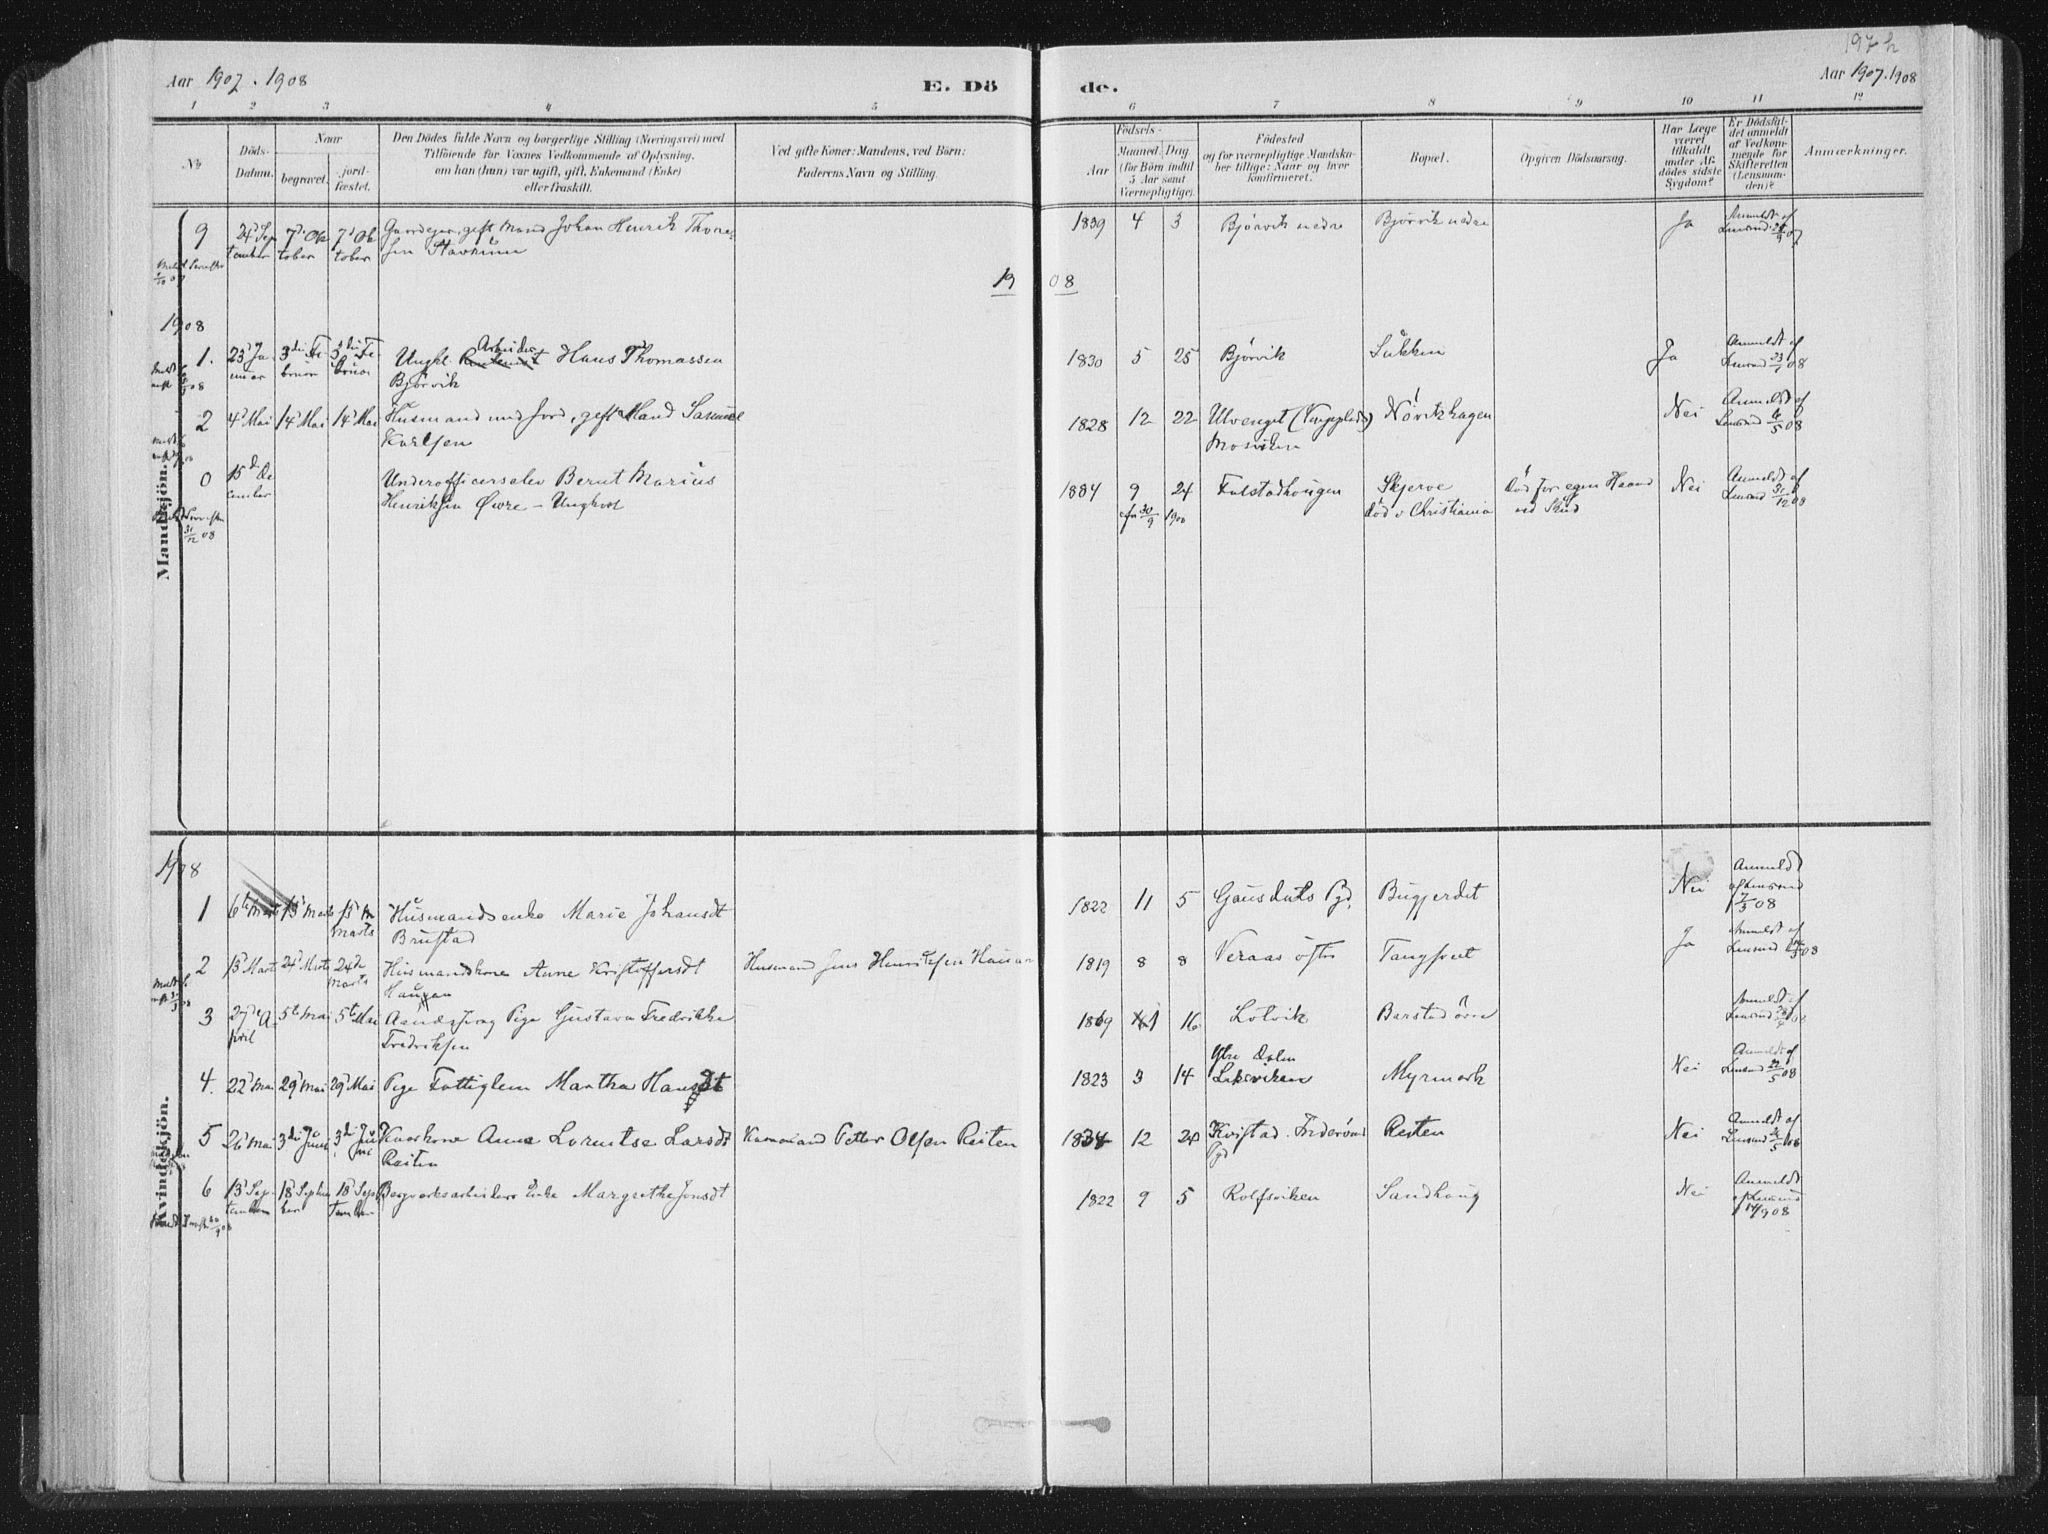 197 b
Aar 1907. 1908
E. Dö
de.
Aar 1907. 1908
1 2 3 4 5 6 7 8 9 10 11 12
No
Döds-
Datum.
Naar
begravet.
jord-
fæstet.
Den Dödes fulde Navn og borgerlige Stilling (Næringsvei) med
Tilföiende for Voxnes Vedkommende af Oplysning,
om han (hun) var ugift, gift, Enkemand (Enke)
eller fraskilt.
Ved gifte Koner: Mandens, ved Börn:
Faderens Navn og Stilling.
Födsels-
Aar
Maaned. Dag
(for Börn indtil
5 Aar samt
Værnepligtige).
Födested
og for værnepligtige Mandska-
ber tillige: Naar og hvor
konfirmeret.
Bopæl.
Opgiven Dödsaarsag.
Har Læge
været
tilkaldt
under Af-
dödes sidste
Sygdom?
Er Dödsfal-
det anmeldt
af Vedkom-
mende for
Skifteretten
(Lensman-
den)?
Anmærkninger.
Mandkjön.
9 24d Sep
tember 7d Ok
tober 7d Ok
tober Gaardeier, gift Mand Johan Henrik Thore-
sen Stavrum 1839 4 3 Bjørvik nedre Bjørvik nedre Ja Anmeldt af
Lensmd
1908
1908
1. 23d Ja
nuar 3die Fe-
bruar 3die Fe-
bruar Ungkl. Arbeider Hans Thomassen
Bjørvik 1830 5 25 Bjørvik Ja Anmeldt af
Lensmd 08
2 4d Mai 14d Mai 14d Mai Husmand med Jord, gift Mand Samuel
Karlsen 1828 12 22 Ulvenget
Mosviken Nørvikhagen Nei Anmeldt af
Lensmd 6/5 08
0 15de De
cember Underofficerselev Bernt Marius
Henriksen Øvre - Ungkarl 1884 9 24
30/9 1900 Falstadhaugen Skjerve
død i Christiania Død for egen Haand
ved Skud Nei Anmeldt af
Lensmd 31/12 08
31/12 08
Kvindekjön.
1908
1 6te Marts 13d Marts 13d
Marts Husmandsenke Marie Johansdt
Brustad 1822 11 5 Gausdals Pgd. Bugjerdet Nei Anmeldt
af Lensmd
7/3 08
2 13d Marts 24d Marts 24de
Marts Husmandskone Anne Kristoffersdt
Haugan Husmand Jens Henriksen Haugan 1819 8 8 Veraas østre Ja Anmeldt af
Lensmd 08
3 27de A-
pril 5te Mai 5te Mai Aandssvag Pige Gustava Fredrikke
Fredriksen 1869 16 Lotvik Barstad øvre Anmeldt af
Lensmd
4. 22d Mai 29d Mai 29d Mai Pige Fattiglem Martha Hansdt 1823 3 14 Ytre Dalen
Leksviken Myrmark Nei Anmeldt af
Lensmd 22/5 08
5 26d Mai 3die Juni 3die Ju
ni Kaarkone Anne Lorentse Larsdt
Reiten Kaarmand Petter Olsen Reiten 1834 12 28 Kvistad. Inderøens
Pgd Reiten Nei Anmeldt af
Lensmd 08
6 13d Sep-
tember 18d Septem
ber 18d Sep
tember Bergverksarbeiders Enke Margrethe Jonsdt 1822 9 5 Rolfsviken Sandhaug Nei Anmeldt
af Lensmd
14/9 08